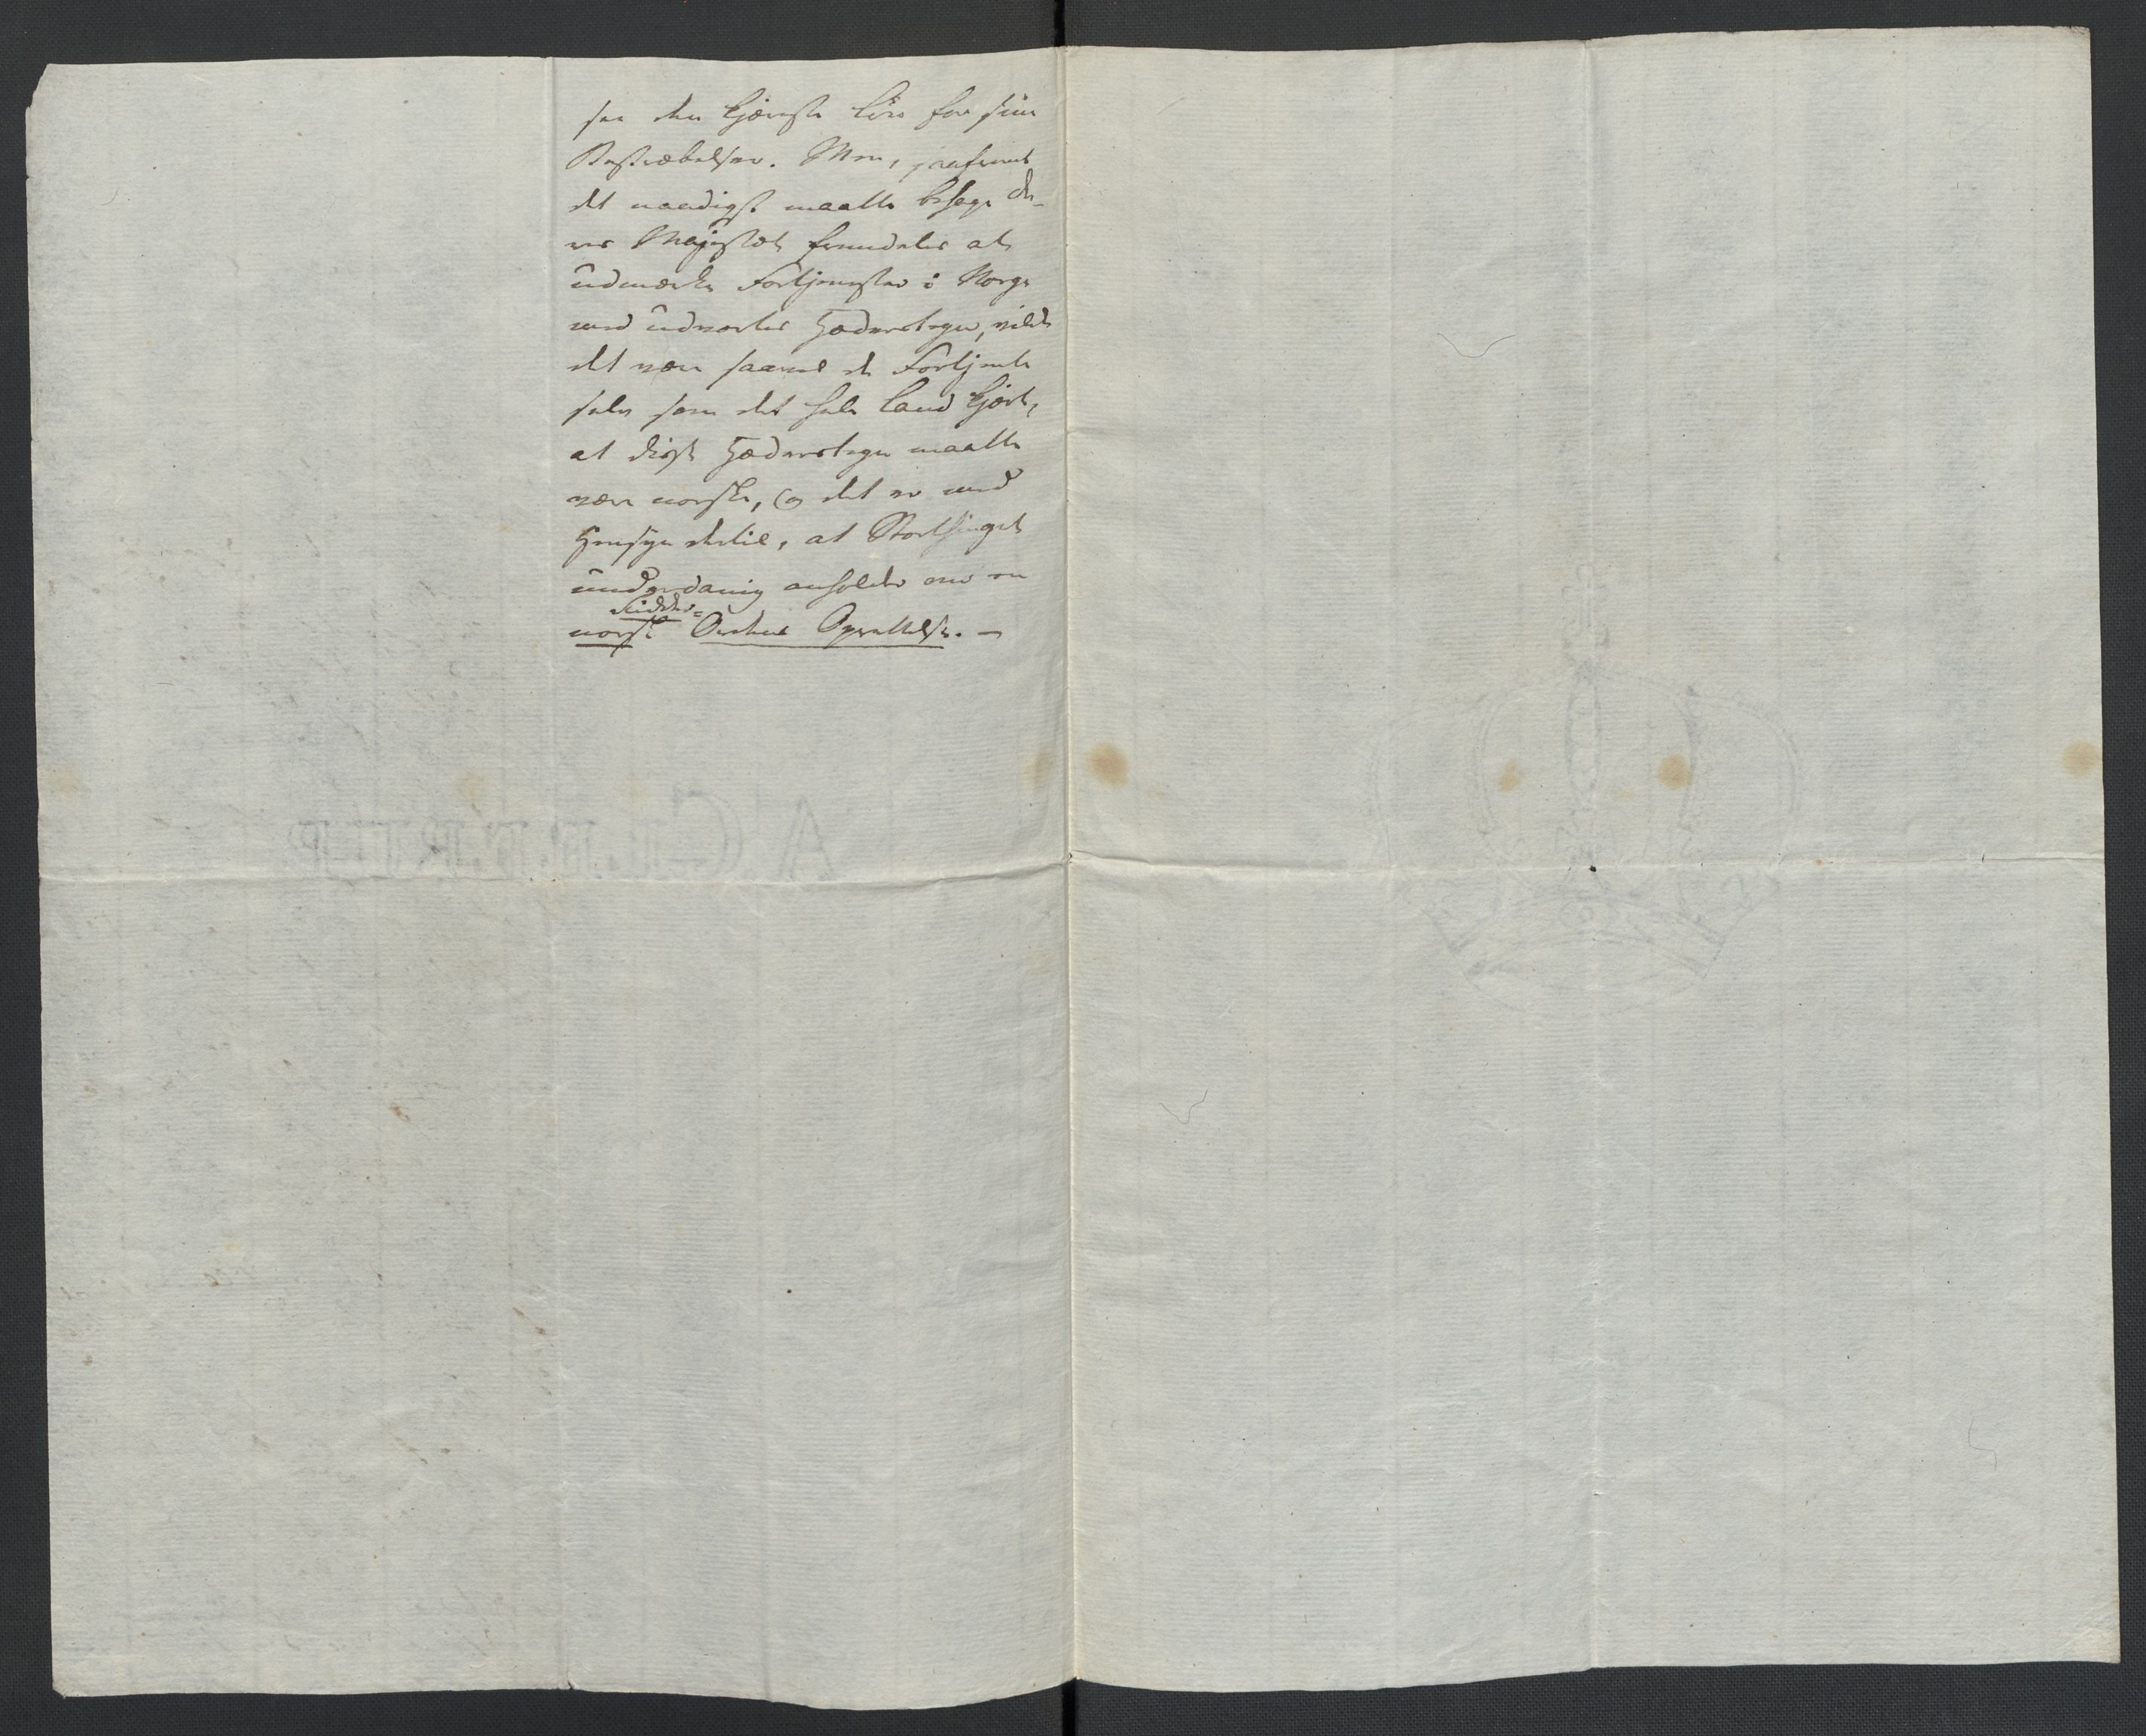 saa den kjæreste Løn for sine
Bestræbelser. Men, saafremt
det naadigst maatte behage De-
res Majestæt fremdeles at
udmærke Fortjenester i Norge
med udvortes Hæderstegn, vilde
det være saavel de Fortjente
selv som det hele Land kjært,
at disse Hæderstegn maatte
være norske, og det er med
Hensyn dertil, at Storthinget
underdanig anholder om en
Ridder-
norsk Ordens Oprettelse. –
A CLEMENTIP